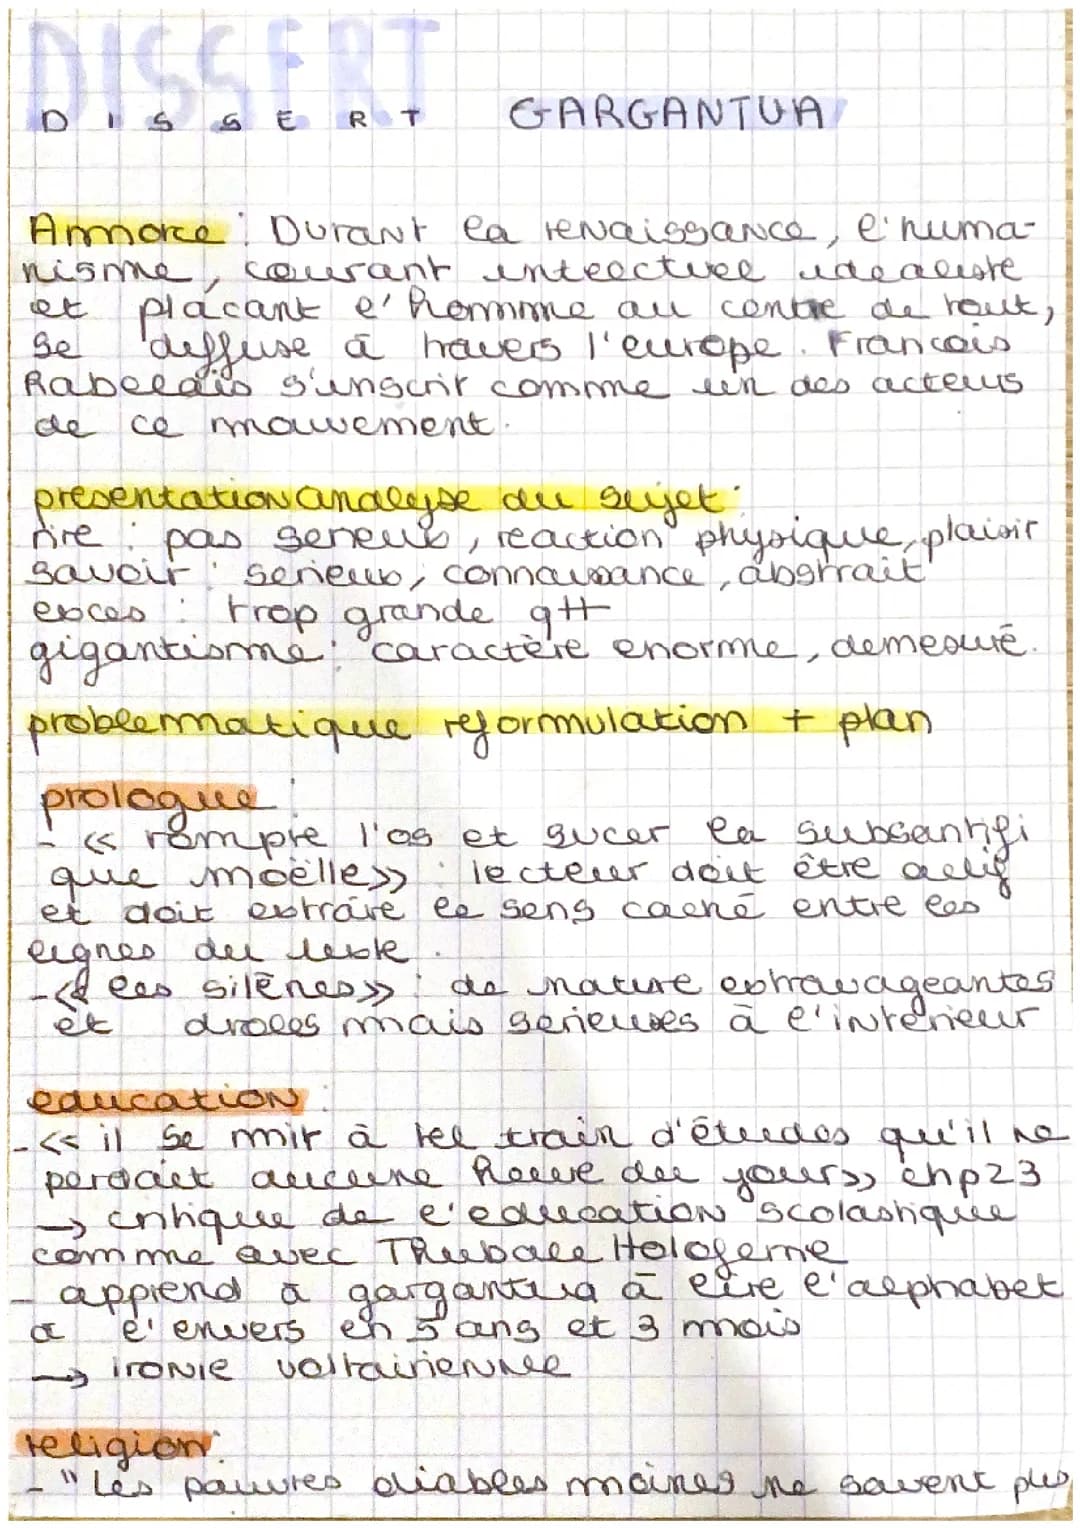 DISSERT
DISSERT GARGANTUA
Ammorce : Durant la renaissance, l'huma-
nisme, courant intelectuel idealiste
et plaçant l'homme au centre de tout,
se diffuse à travers l'europe. Francois
Rabelais s'inscrit comme un des acteurs
de ce mouvement.
presentation analyse du sujet :
rire : pas serieux, reaction physique, plaisir
savoir : serieux, connaissance, abstrait
exces : trop grande qtt
gigantisme : caractère enorme, demesuré.
problematique reformulation + plan
prologue :
- << rompre l'os et sucer la subsantifi
que moëlle>> : lecteur doit être actif
et doit extraire le sens caché entre les
lignes du texte.
- << les silènes>> : de nature extravageantes
et droles mais serieuses à l'interieur
education :
- << il se mit à tel train d'études qu'il ne
perdait aucune heure du jour>> chp23
→ critique de l'education scolastique
comme avec Thubale Holoferne
- apprend à gargantua à lire l'alphabet
a l'envers en 5 ans et 3 mois
→ ironie voltairienne
religion :
- "Les pauvres diables moines ne savent plus